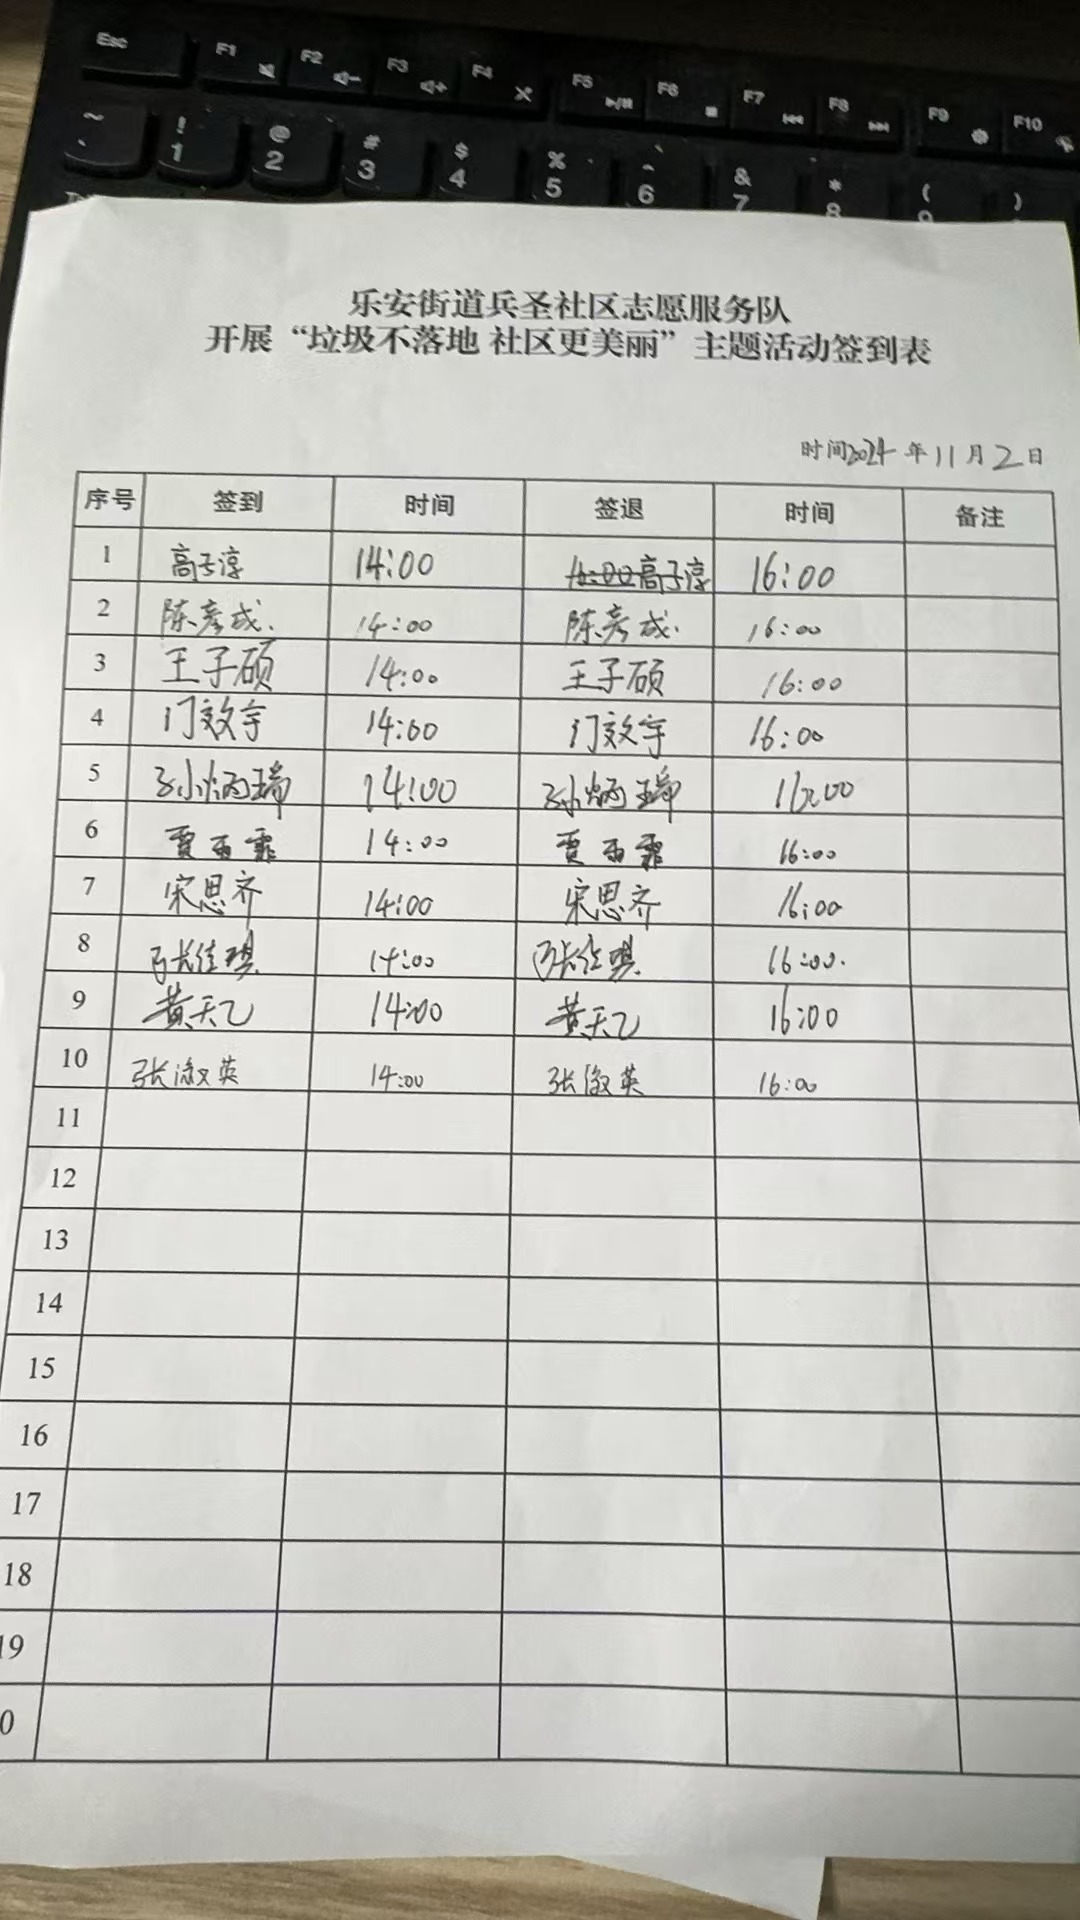 Esc F1 F2 F3 F4 F5 F6 F7 F8 F9 F10
~ ! @ # $ % ^ & * ( )
` 1 2 3 4 5 6 7 8 9
乐安街道兵圣社区志愿服务队
开展“垃圾不落地 社区更美丽”主题活动签到表
时间2024年11月2日
序号 签到 时间 签退 时间 备注
1 高子淳 14:00 16:00高子淳 16:00
2 陈彦成. 14:00 陈彦成. 16:00
3 王子硕 14:00 王子硕 16:00
4 门效宇 14:00 门效宇 16:00
5 孙炳瑞 14:00 孙炳瑞 16:00
6 贾雨霏 14:00 贾雨霏 16:00
7 宋思齐 14:00 宋思齐 16:00
8 张佳琪 14:00 张佳琪 16:00.
9 黄天乙 14:00 黄天乙 16:00
10 张淑英 14:00 张淑英 16:00
11
12
13
14
15
16
17
18
19
0